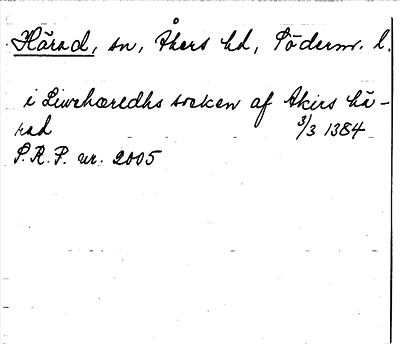 Härad, sn, Åkers hd, Söderm. l.
i Liwehæredhs socken af Akirs hä-
rad 3/3 1384
S.R.P. nr. 2005